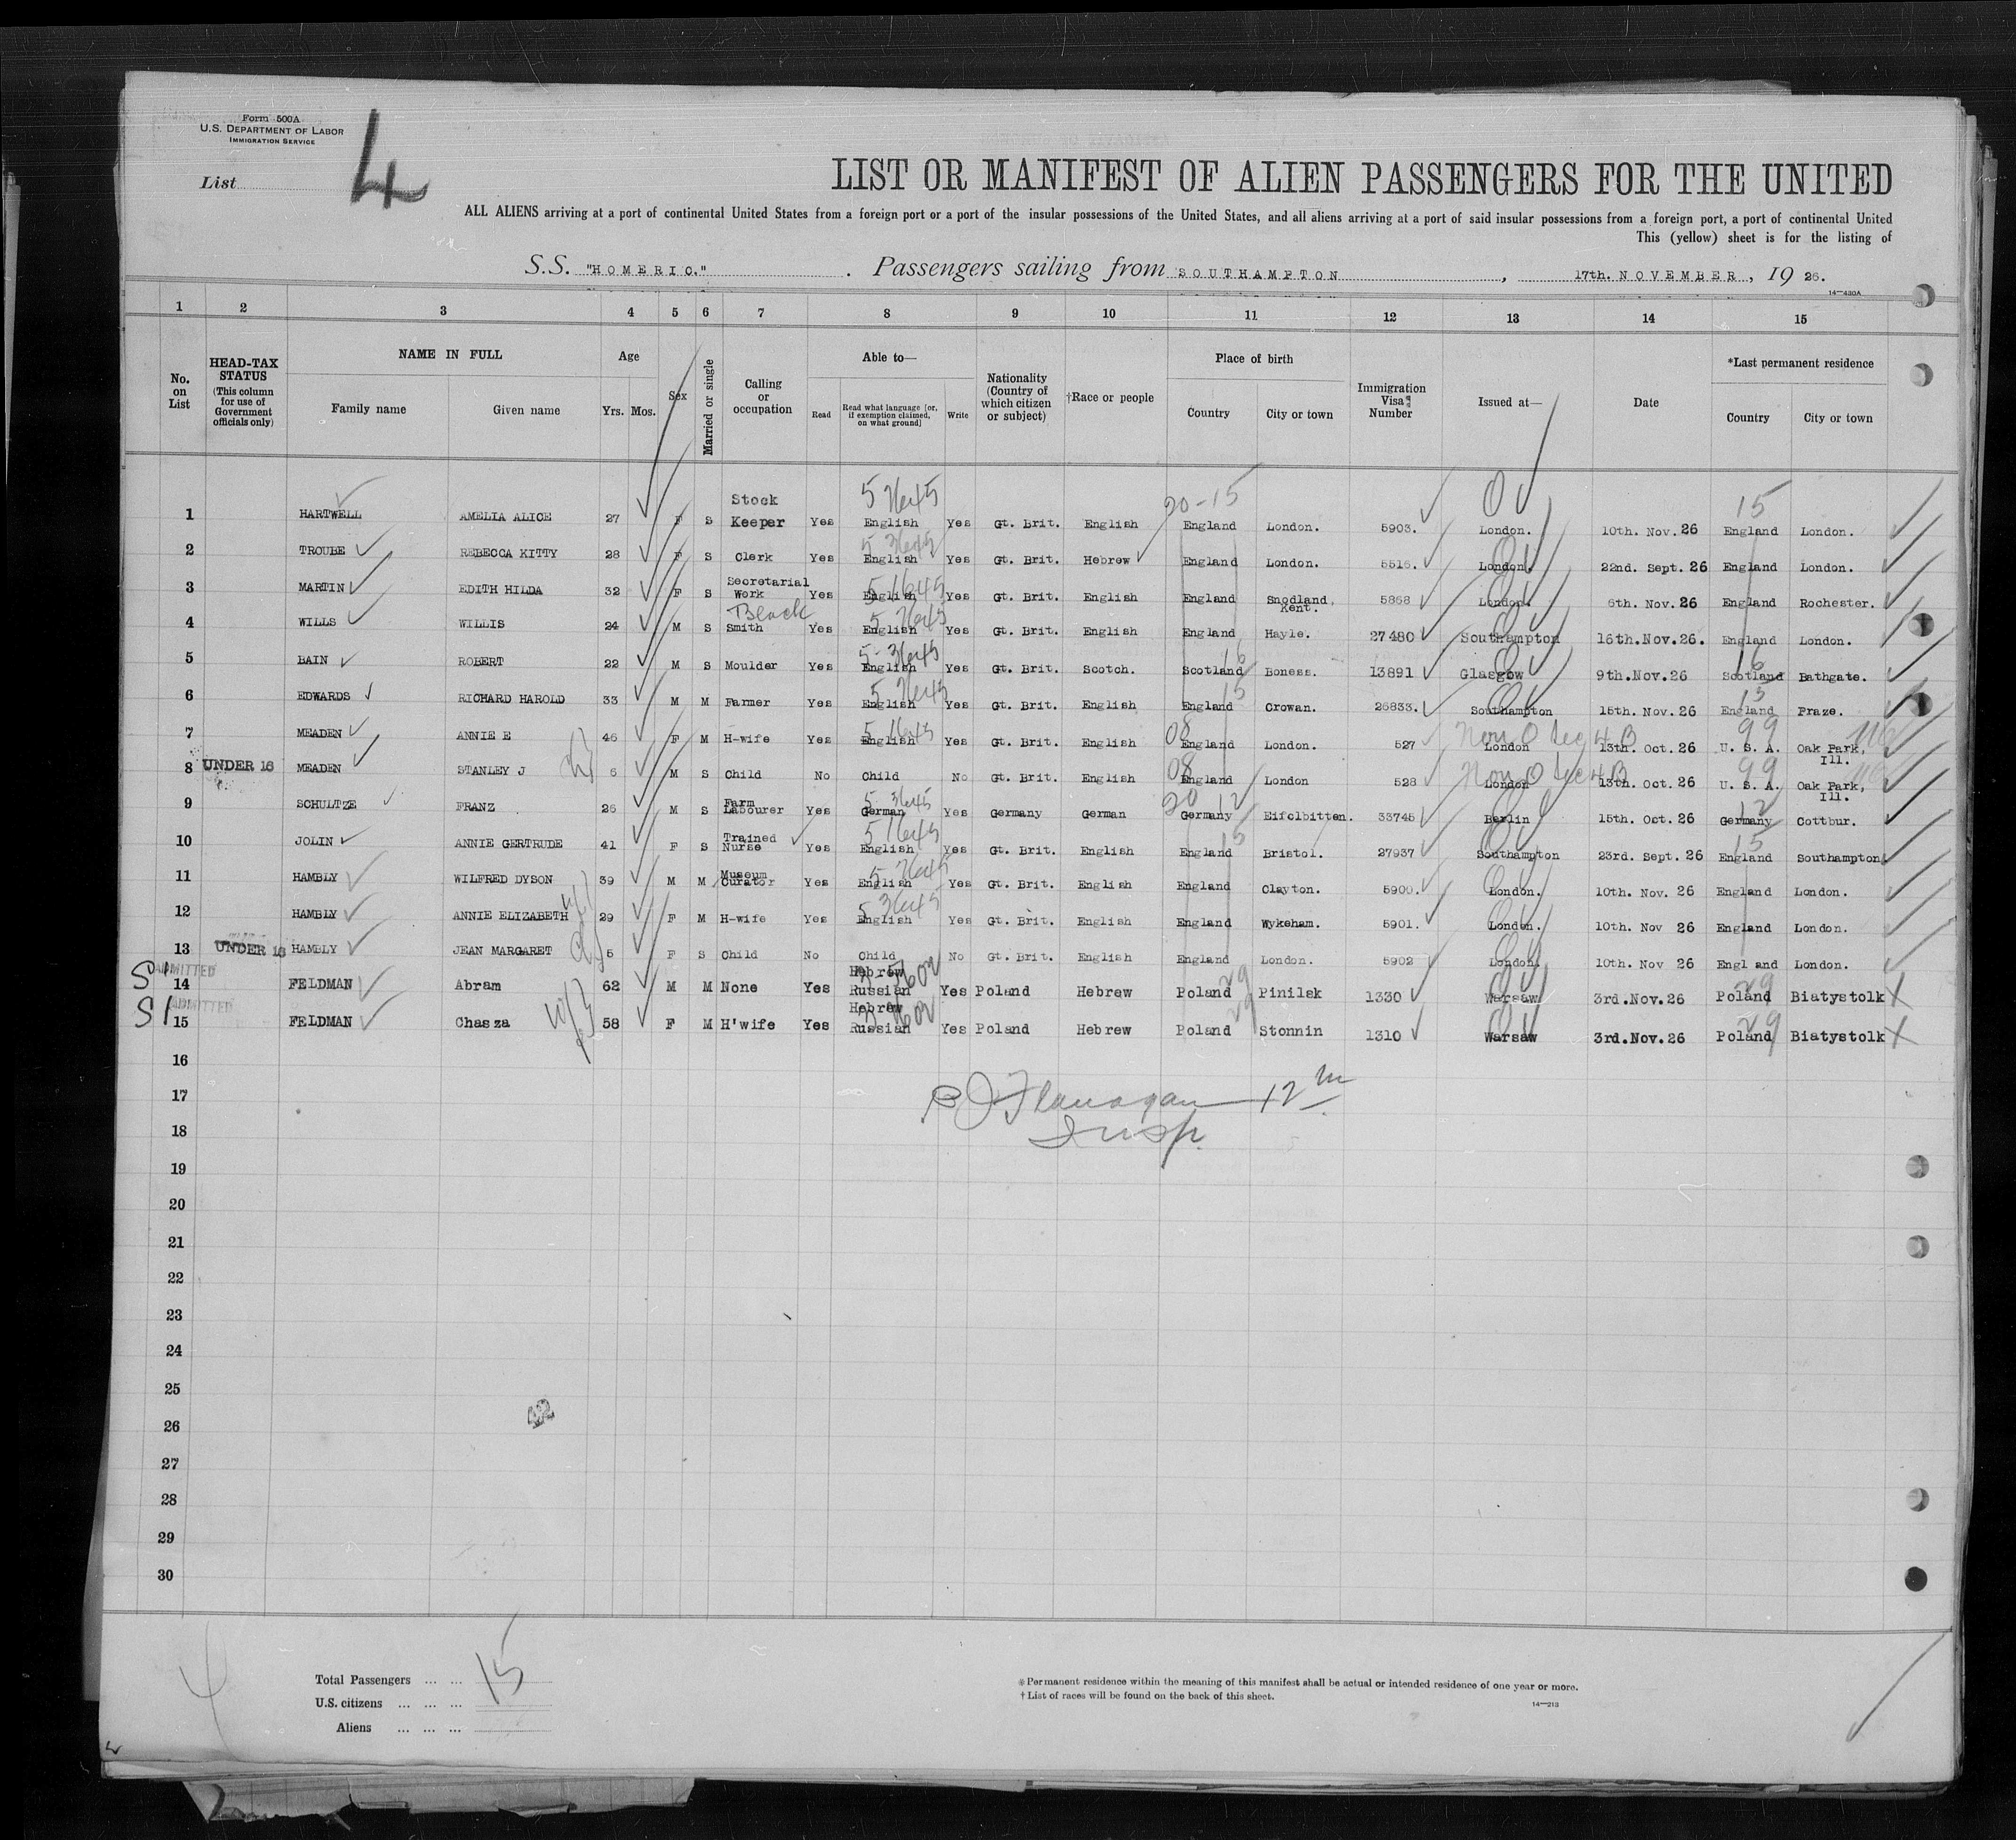 Form 500A
U.S. DEPARTMENT OF LABOR
IMMIGRATION SERVICE
List 4
LIST OR MANIFEST OF ALIEN PASSENGERS FOR THE UNITED
ALL ALIENS arriving at a port of continental United States from a foreign port or a port of the insular possessions of the United States, and all aliens arriving at a port of said insular possessions from a foreign port, a port of continental United
This (yellow) sheet is for the listing of
S.S. "HOMERIC." . Passengers sailing from SOUTHAMPTON , 17th. NOVEMBER , 19 26.
14—430A
1 2 3 4 5 6 7 8 9 10 11 12 13 14 15
No. on List
HEAD-TAX STATUS (This column for use of Government officials only)
NAME IN FULL
Family name Given name
Age
Yrs. Mos.
Sex
Married or single
Calling or occupation
Able to—
Read Read what language [or, if exemption claimed, on what ground] Write
Nationality (Country of which citizen or subject)
†Race or people
Place of birth
Country City or town
Immigration Visa Number
Issued at—
Date
*Last permanent residence
Country City or town
1 HARTWELL AMELIA ALICE 27 F S Stock Keeper Yes English Yes Gt. Brit. English England London. 5903. London. 10th. Nov. 26 England London.
20-15 15
2 TROUBE REBECCA KITTY 28 F S Clerk Yes English Yes Gt. Brit. Hebrew England London. 5516. London. 22nd. Sept. 26 England London.
3 MARTIN EDITH HILDA 32 F S Secretarial Work Yes English Yes Gt. Brit. English England Snodland, Kent. 5868 London. 6th. Nov. 26 England Rochester.
4 WILLS WILLIS 24 M S Black Smith Yes English Yes Gt. Brit. English England Hayle. 27480 Southampton 16th.Nov.26. England London.
5 BAIN ROBERT 22 M S Moulder Yes English Yes Gt. Brit. Scotch. Scotland Boness. 13891 Glasgow 9th.Nov.26 Scotland Bathgate.
16 16
6 EDWARDS RICHARD HAROLD 33 M M Farmer Yes English Yes Gt. Brit. English England Crowan. 26833. Southampton 15th. Nov. 26 England Praze.
15 15
7 MEADEN ANNIE E 46 F M H-wife Yes English Yes Gt. Brit. English England London. 527 London 13th. Oct. 26 U. S. A. Oak Park, Ill.
08 99
8 UNDER 16 MEADEN STANLEY J 6 M S Child No Child No Gt. Brit. English England London 528 London 13th. Oct. 26 U. S. A. Oak Park, Ill.
08 99
9 SCHULTZE FRANZ 26 M S Farm Labourer Yes German Yes Germany German Germany Eifolbitten. 33745 Berlin 15th. Oct. 26 Germany Cottbur.
20 12 12
10 JOLIN ANNIE GERTRUDE 41 F S Trained Nurse Yes English Yes Gt. Brit. English England Bristol. 27937 Southampton 23rd. Sept. 26 England Southampton
15 15
11 HAMBLY WILFRED DYSON 39 M M Museum Curator Yes English Yes Gt. Brit. English England Clayton. 5900. London. 10th. Nov. 26 England London.
12 HAMBLY ANNIE ELIZABETH 29 F M H-wife Yes English Yes Gt. Brit. English England Wykeham. 5901. London. 10th. Nov 26 England London.
13 UNDER 16 HAMBLY JEAN MARGARET 5 F S Child No Child No Gt. Brit. English England London. 5902 London. 10th. Nov 26 Engl and London.
SI ADMITTED 14 FELDMAN Abram 62 M M None Yes Hebrew Russian Yes Poland Hebrew Poland Pinilsk 1330 Warsaw 3rd.Nov.26 Poland Biatystolk
29 29
SI ADMITTED 15 FELDMAN Chasza 58 F M H'wife Yes Hebrew Russian Yes Poland Hebrew Poland Stonnin 1310 Warsaw 3rd.Nov.26 Poland Biatystolk
29 29
16
17
Flanagan 12 m
18
Insp.
19
20
21
22
23
24
25
26
27
28
29
30
Total Passengers ... ... 15
U.S. citizens ... ... ...
Aliens ... ... ...
*Permanent residence within the meaning of this manifest shall be actual or intended residence of one year or more.
†List of races will be found on the back of this sheet.
14—213